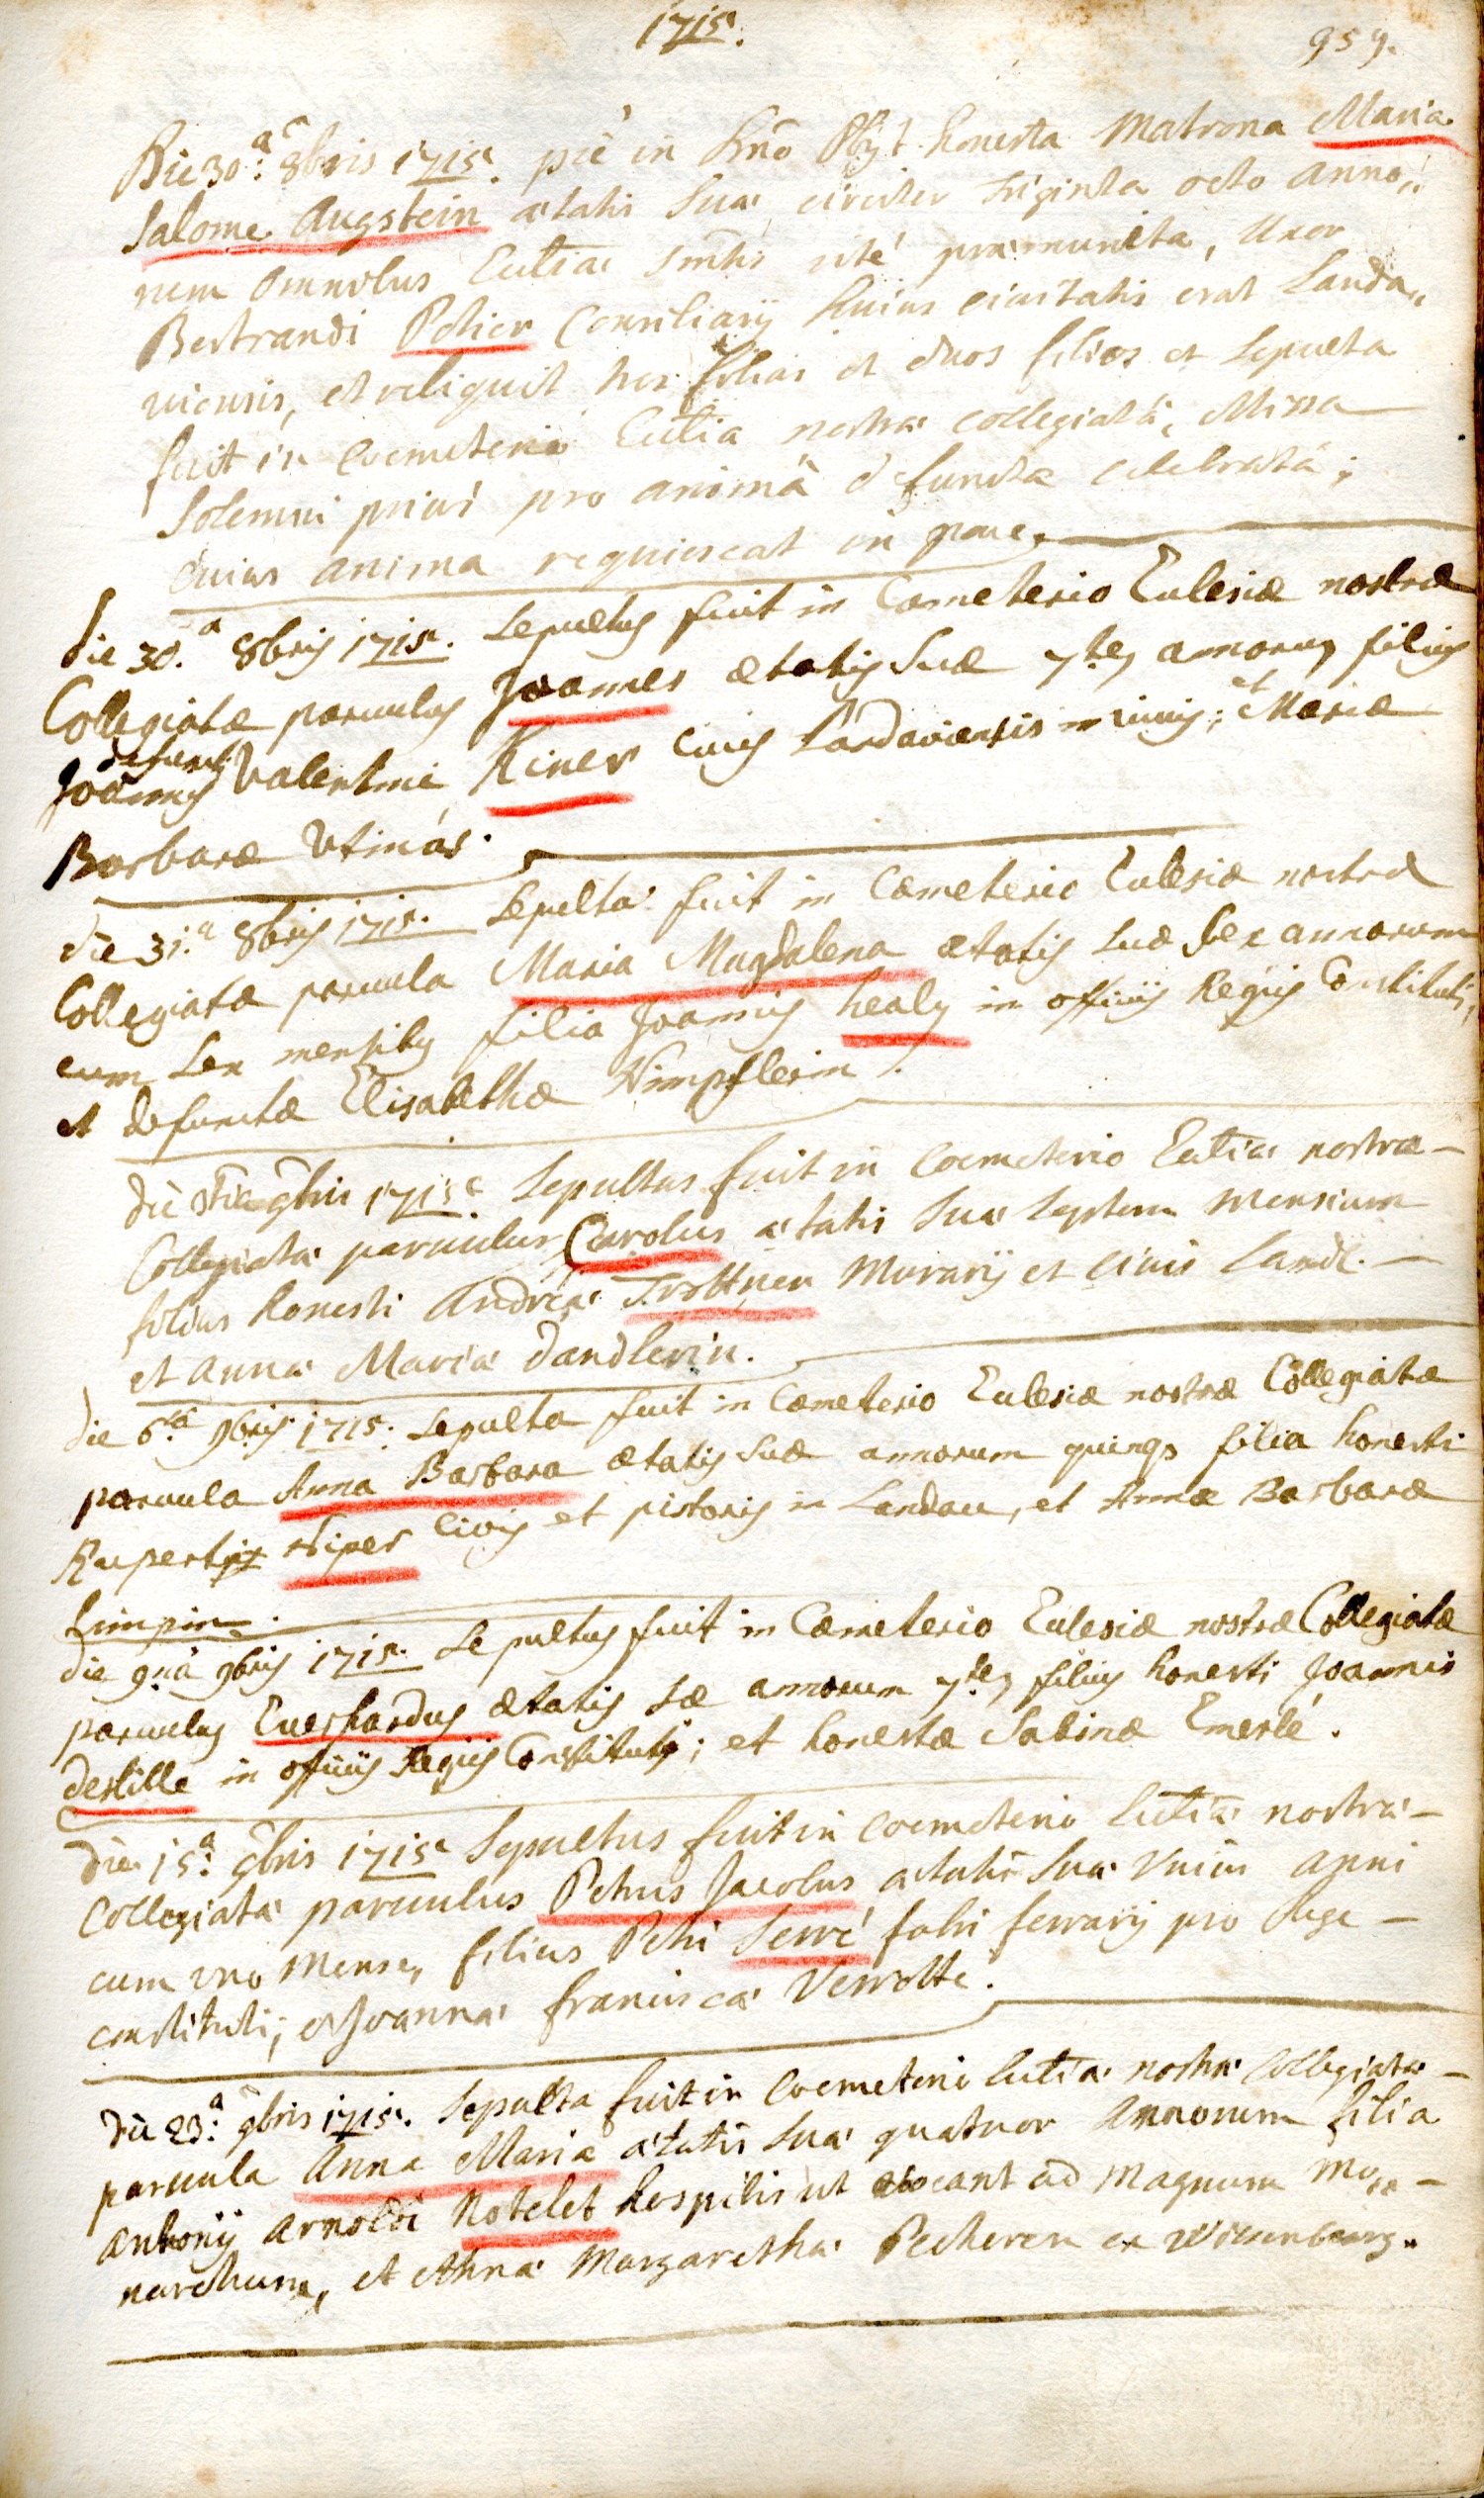 1715.
959.
Die 30.a 8bris 1715. pie in Dno Obijt honesta Matrona Maria
Salome Augstein ætatis Suæ circiter triginta octo anno„
rum omnibus Eccliæ Smtis rite præmunita, Uxor
Bertrandi Potier Consiliarij huius civitatis erat Landa„
viensis, et reliquit tres filias et duos filios et Sepulta
fuit in Coemeterio Eccliæ nostræ Collegiatæ, Missa
Solemni prius pro animâ defunctæ celebratâ;
cuius anima requiescat in pace.
die 30.a 8bris 1715. Sepultus fuit in Cæmeterio Ecclesiæ nostræ
Collegiatæ parvulus Joannes ætatis Suæ 7tem annorum filius
defuncti
Joannis Valentini Kiner Civis Landaviensis et Mariæ
Barbaræ
die 31.a 8bris 1715. Sepulta fuit in Cæmeterio Ecclesiæ nostræ
Collegiatæ parvula Maria Magdalena ætatis suæ sex annorum
cum sex mensibus filia Joannis healy in officijs Regijs Constituti,
et defunctæ Elisabethæ Wimpflerin.
die 9bris 1715. Sepultus fuit in Coemeterio Eccliæ nostræ —
Collegiatæ parvulus Carolus ætatis Suæ Septem mensium
filius honesti Andreæ Trottner Murarij et civis Land. —
et Annæ Mariæ Dandlerin.
die 6.ta 9bris 1715. Sepulta fuit in Cæmeterio Ecclesiæ nostræ Collegiatæ
parvula Anna Barbara ætatis Suæ annorum quinque filia honesti
Ruperti Civis et pistoris in Landau, et Annæ Barbaræ
Limpin.
die 9.na 9bris 1715. Sepultus fuit in Cæmeterio Ecclesiæ nostræ Collegiatæ
parvulus Everhardus ætatis sæ annorum 7tem filius honesti Joannis
destille in officijs Regijs Constituti; et honestæ Sabinæ Emerlé.
die 15.a 9bris 1715 Sepultus fuit in Coemeterio Eccliæ nostræ —
Collegiatæ parvulus Petrus Jacobus ætatis Suæ Unius anni
cum uno Mense, filius Petri Serré fabri ferrarij pro Rege —
constituti; et Joannæ franciscæ Verrotte.
die 23.a 9bris 1715. Sepulta fuit in Coemeterio Eccliæ nostræ Collegiatæ —
parvula Anna Maria ætatis Suæ quatuor Annorum filia
Antonij Arnoldi Notelet hospitis ut vocant ad Magnum Mo„ —
narcham, et Annæ Margarethæ Pecheren ex Wissenbourg.